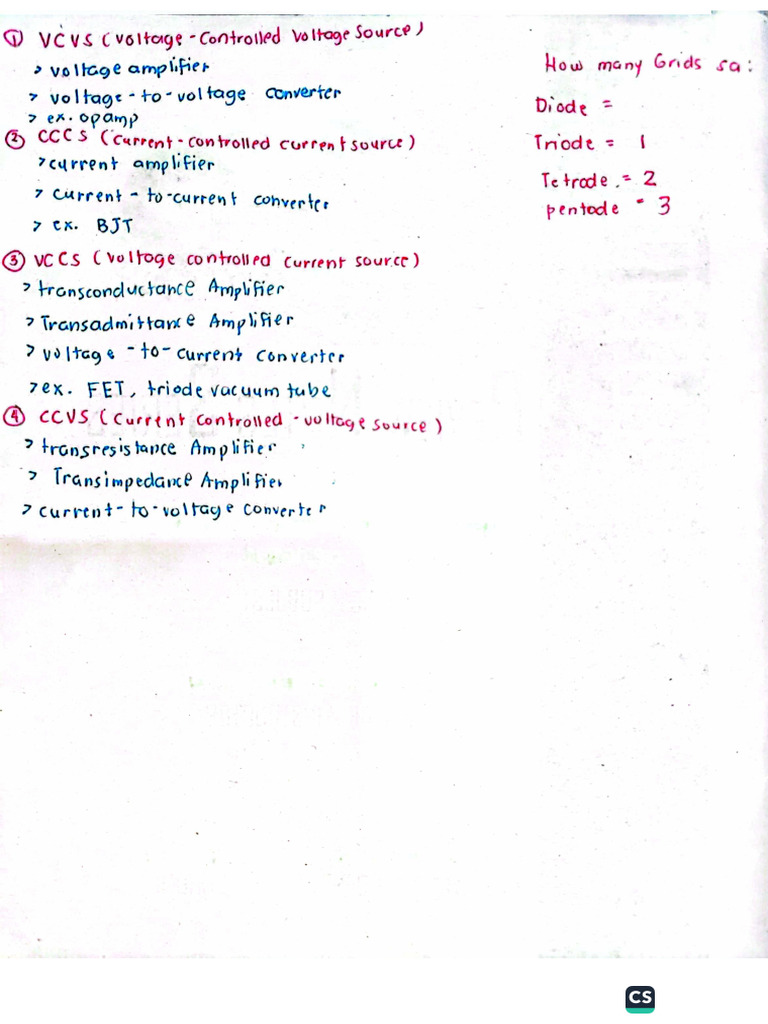 ① VCVS (Voltage-Controlled Voltage Source)
> voltage amplifier
> voltage-to-voltage converter
> ex. opamp
② CCCS (Current-controlled current source)
> current amplifier
> Current-to-current converter
> ex. BJT
③ VCCS (Voltage controlled current source)
> transconductance Amplifier
> Transadmittance Amplifier
> voltage-to-current converter
> ex. FET, triode vacuum tube
④ CCVS (Current controlled-voltage source)
> transresistance Amplifier
> Transimpedance Amplifier
> current-to-voltage converter
How many Grids sa:
Diode =
Triode = 1
Tetrode. = 2
pentode = 3
CS